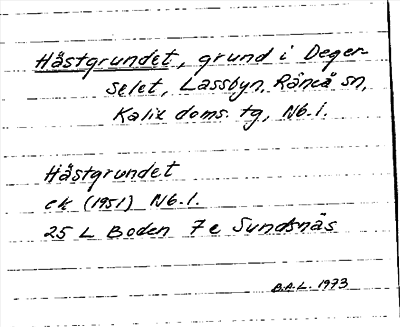 Hästgrundet, grund i Deger-
selet, Lassbyn, Råneå sn,
Kalix doms. tg, Nb. l.
Hästgrundet
ek (1951) Nb. l.
25 L Boden 7e Sundsnäs
B.A.L. 1973